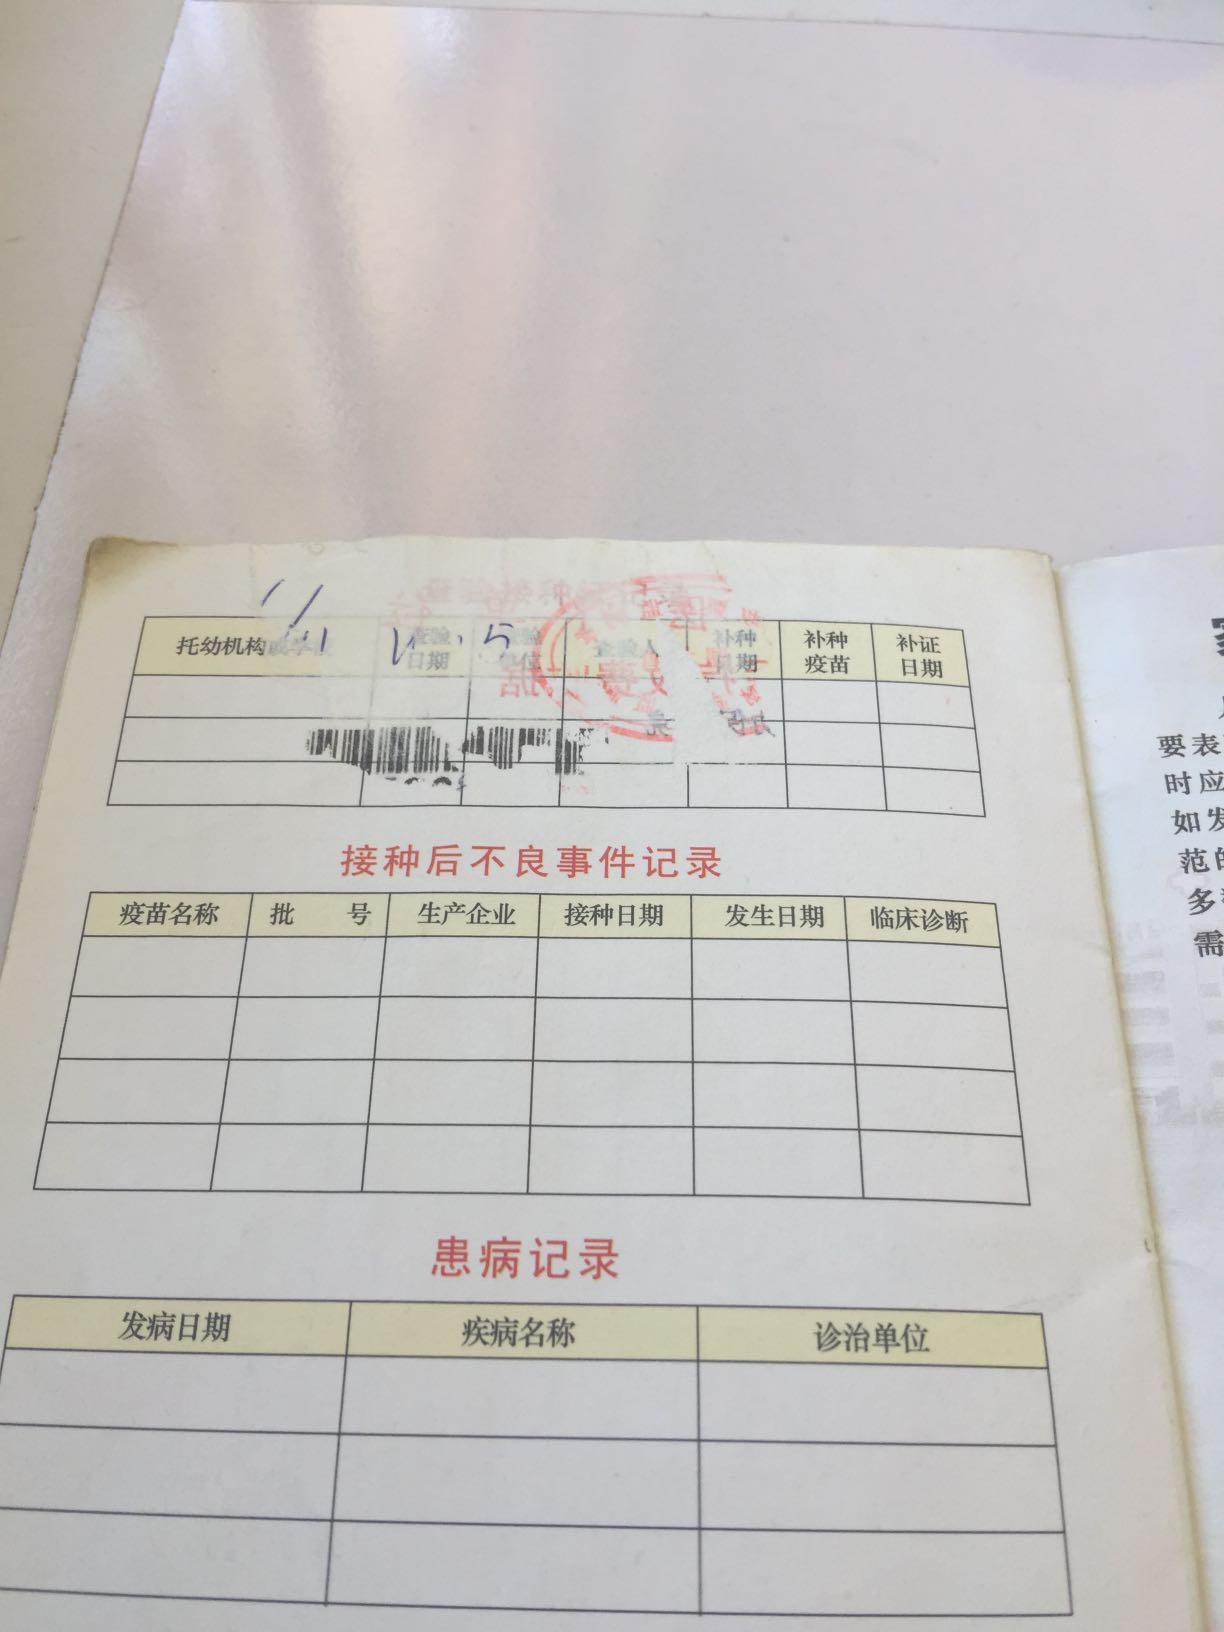 托幼机构或学校 查验日期 查验单位 查验人 补种日期 补种疫苗 补证日期
接种后不良事件记录
疫苗名称 批 号 生产企业 接种日期 发生日期 临床诊断
患病记录
发病日期 疾病名称 诊治单位
要表
时应
如发
范的
需